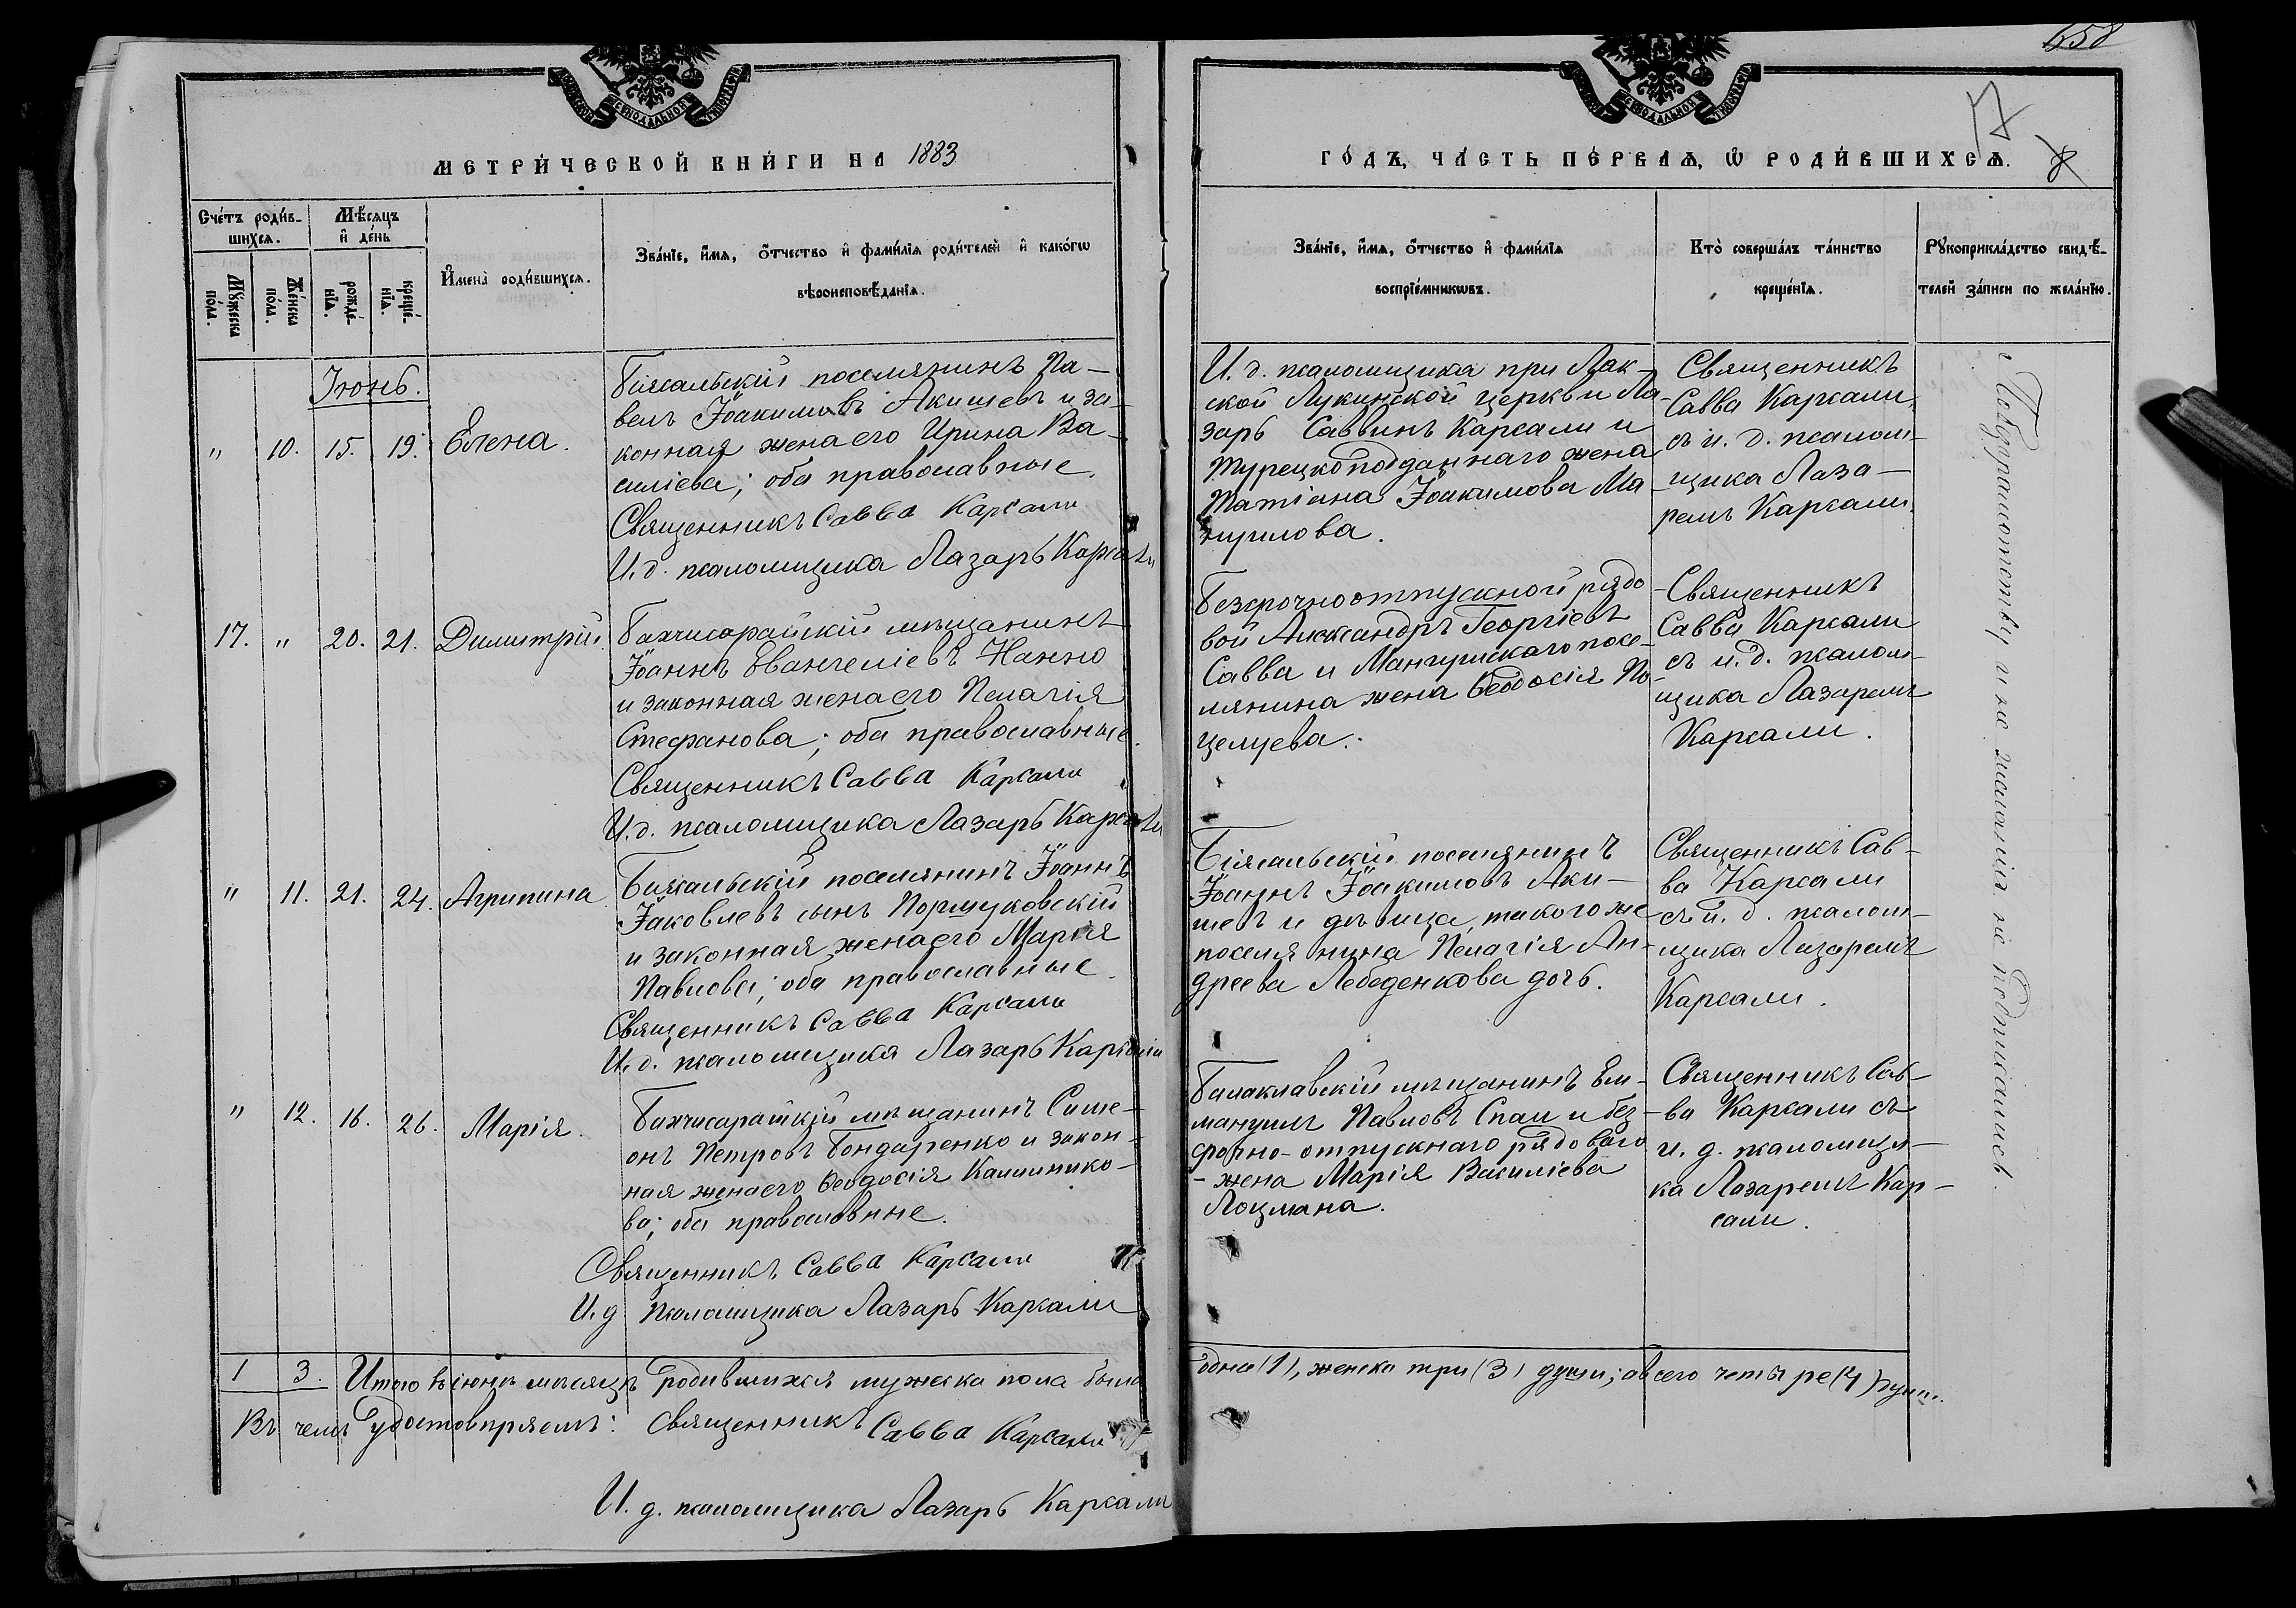 658
17
МЕТРИ́ЧЕСКОЙ КНИ́ГИ НА 1883
ГО́ДЪ, ЧА́СТЬ ПЕ́РВАѦ, Ѡ҆ РОДИ́ВШИХСѦ.
Сче́тъ роди́в-
шихсѧ.
Мꙋ́жеска по́ла.
Же́нска по́ла.
Мѣ́сѧцъ
и҆ де́нь
рожде́-
нїѧ.
креще́-
нїѧ.
И҆мена̀ роди́вшихсѧ.
Зва́нїе, и҆́мѧ, ѻ҆́тчество и҆ фами́лїѧ роди́телей и҆ како́гѡ
вѣроисповѣ́данїѧ.
Зва́нїе, и҆́мѧ, ѻ҆́тчество и҆ фами́лїѧ
воспрїе́мникѡвъ.
Кто̀ соверша́лъ та́инство
креще́нїѧ.
Рꙋкоприкла́дство свидѣ́-
телей за́писи по жела́нїю.
Іюнь.
" 10. 15. 19. Елена.
Біясальскій поселянинъ Па-
велъ Іоакимовъ Акишевъ и за-
конная жена его Ирина Ва-
силіева; оба православные.
Священникъ Савва Карсали
И. д. псаломщика Лазарь Карсали
И. д. псаломщика при Лак-
ской Лукинской церкви Ла-
зарь Саввинъ Карсали и
турецкоподданнаго жена
Татіана Іоакимова Ма-
Священникъ
Савва Карсали,
съ и. д. псалом-
щика Лаза-
ремъ Карсали.
17. " 20. 21. Димитрій.
Бахчисарайскій мѣщанинъ
Іоаннъ Евангеліевъ Нанно
и законная жена его Пелагія
Стефанова; оба православные.
Священникъ Савва Карсали
И. д. псаломщика Лазарь Карсали
Безсрочноотпускной рядо-
вой Александръ Георгіевъ
Савва и Мангушскаго посе-
лянина жена Ѳеодосія По-
целуева.
Священникъ
Савва Карсали
съ и. д. псалом-
щика Лазаремъ
Карсали.
" 11. 21. 24. Агрипина
Біясальскій поселянинъ Іоаннъ
Іаковлевъ сынъ
и законная жена его Марія
Павлова; оба православные.
Священникъ Савва Карсали
И. д. псаломщика Лазарь Карсали
Біясальскій поселянинъ
Іоаннъ Іоакимовъ Аки-
шевъ и дѣвица, такого же
поселянина Пелагія Ан-
дреева Лебеденкова дочь.
Священникъ Сав-
ва Карсали
съ и. д. псалом-
щика Лазаремъ
Карсали.
" 12. 16. 26. Марія.
Бахчисарайскій мѣщанинъ Симе-
онъ Петровъ Бондаренко и закон-
ная жена его Ѳеодосія Калинико-
ва; оба православные.
Священникъ Савва Карсали
И. д. псаломщика Лазарь Карсали
Балаклавскій мѣщанинъ Ем-
мануилъ Павловъ Спаи и без-
срочно-отпускнаго рядоваго
- жена Марія Василіева
Лоцмана.
Священникъ Сав-
ва Карсали съ
и. д. псаломщи-
ка Лазаремъ Кар-
сали.
По безграмотству и не желанія не подписались.
1 3. Итого въ іюнѣ мѣсяцѣ родившихся мужеска пола была одна (1), женска три (3) души; а всего четыре (4) души.
Въ чемъ удостовѣряемъ: священникъ Савва Карсали
И. д. псаломщика Лазарь Карсали